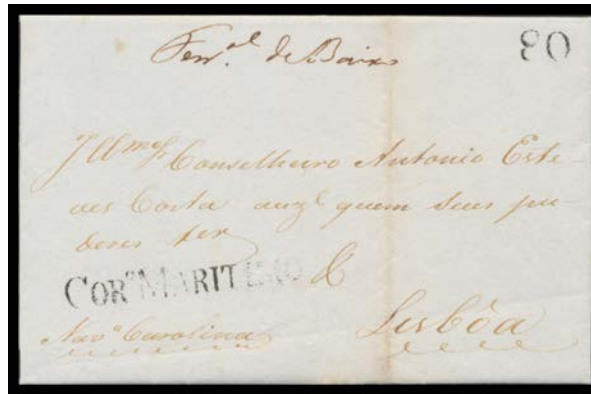 Fern.al de Baixo
80
Illmo Sr Conselheiro Antonio Este-
ves Costa auze quem seus po-
deres ter
&
CORº MARITIMO
Navº Carolina
Lisbôa